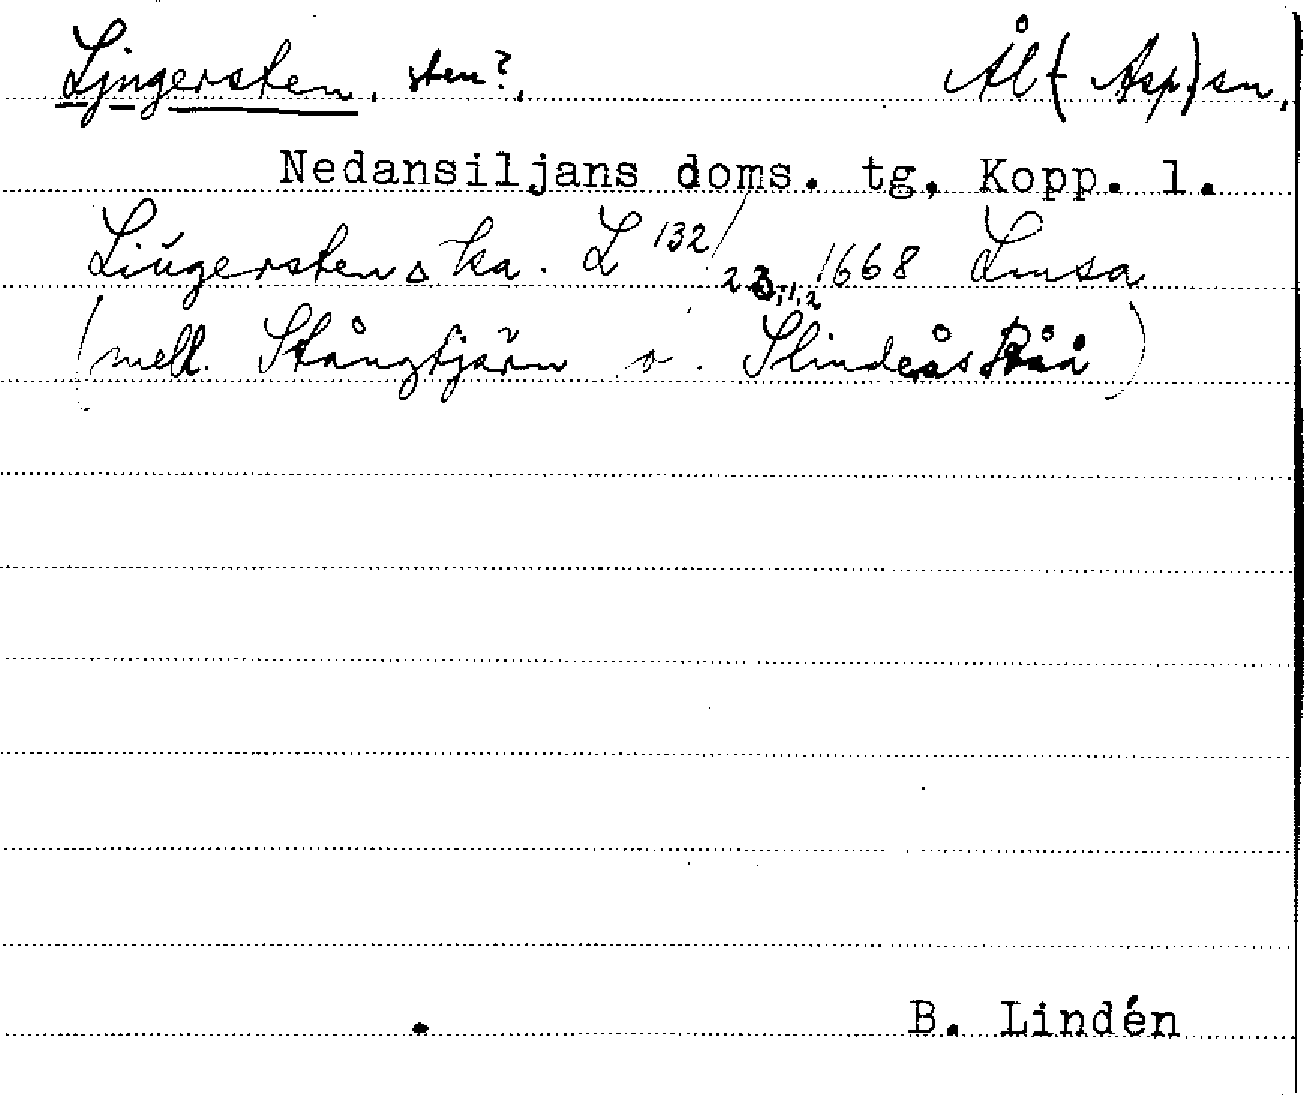 Ljngersten, sten?, Ål (Asp) sn,
Nedansiljans doms. tg, Kopp. l.
Liŭgersten △ ka. L 132/23,1,2 1668 Lmsa
(mell. Stångtjärn o. Slindeås Råå)
B. Lindén